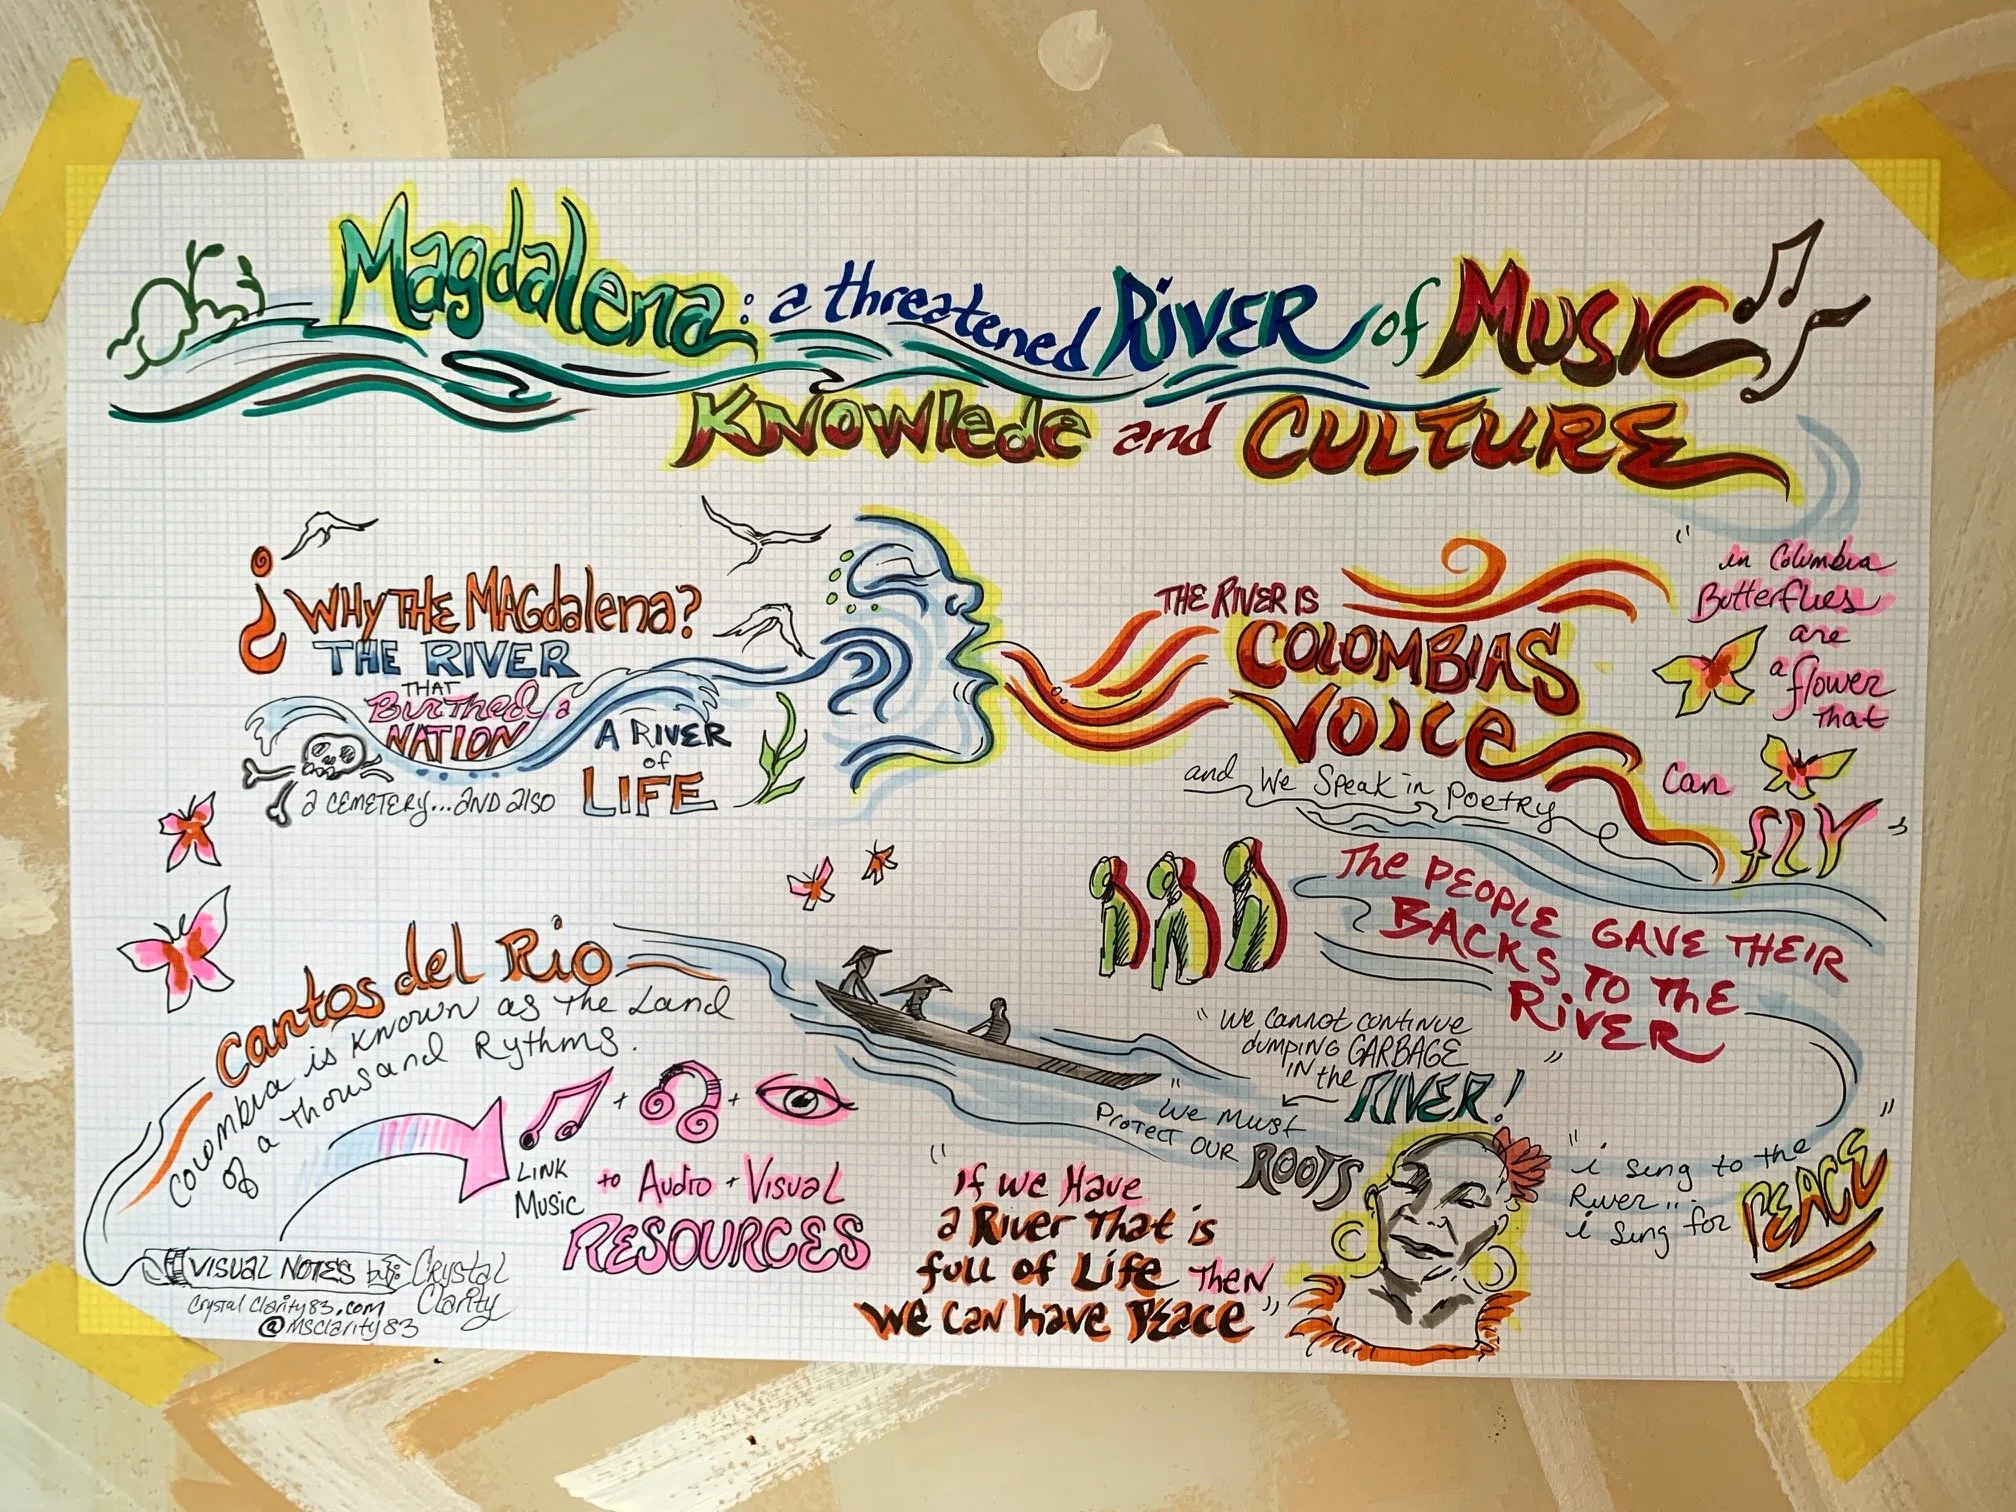 Magdalena: a threatened RiVER of MUSIC
KNOWledc and CULTURE
¿ WHY THE MAGdalena?
THE RIVER
THAT
BirTHed a
NATION
a CEMETERY... AND Also
A RIVER
of
LIFE
THE RIVER IS
COLOMBIAS
VOICE
and We Speak in Poetry
"in Columbia
Butterflies
are
a flower
That
can
FLY"
The PEOPLE GAVE THEIR
BACKS TO The
RiVER
"We cannot continue
dumping GARBAGE
IN the RIVER!"
"We Must
Protect OUR
ROOTS
"i sing to the
River...
i sing for PEACE"
Cantos del Rio
Colombia is known as the Land
of a thousand Rythms.
LINK
Music
+
+
to Audio + Visual
RESOURCES
"If we Have
a River That is
full of Life THEN
We can have Peace"
VISUAL NOTES by: Crystal
Clarity
Crystal Clarity83.com
@msclarity83